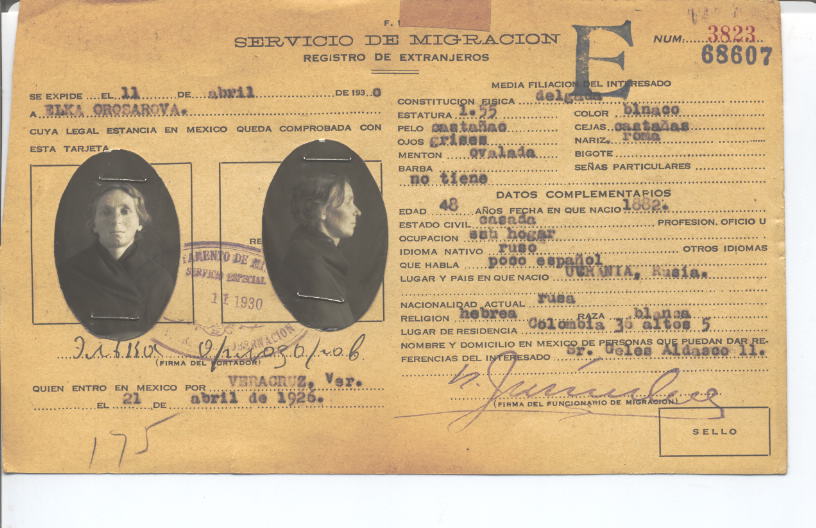 F.
SERVICIO DE MIGRACION
REGISTRO DE EXTRANJEROS
NUM. 3823
68607
E
SE EXPIDE EL 11 DE abril DE 1930
A ELKA OROSAROVA.
CUYA LEGAL ESTANCIA EN MEXICO QUEDA COMPROBADA CON
ESTA TARJETA
AMENTO DE MI
SERVICIO ESPECIAL
1930
(FIRMA DEL PORTADOR)
QUIEN ENTRO EN MEXICO POR VERACRUZ, Ver.
EL 21 DE abril de 1926.
175
MEDIA FILIACION DEL INTERESADO
CONSTITUCION FISICA delgada
ESTATURA 1.55 COLOR blnaco
PELO castañao CEJAS castañas
OJOS grises NARIZ roma
MENTON ovalada BIGOTE
BARBA SEÑAS PARTICULARES
no tiene
DATOS COMPLEMENTARIOS
EDAD 48 AÑOS FECHA EN QUE NACIO 1882.
ESTADO CIVIL casada PROFESION, OFICIO U
OCUPACION suh hogar
IDIOMA NATIVO ruso OTROS IDIOMAS
QUE HABLA poco español
LUGAR Y PAIS EN QUE NACIO UCRANIA, Rusia.
NACIONALIDAD ACTUAL rusa
RELIGION hebrea RAZA blanca
LUGAR DE RESIDENCIA Colombia 36 altos 5
NOMBRE Y DOMICILIO EN MEXICO DE PERSONAS QUE PUEDAN DAR RE-
FERENCIAS DEL INTERESADO Sr. Geles Aldasco 11.
(FIRMA DEL FUNCIONARIO DE MIGRACION)
SELLO